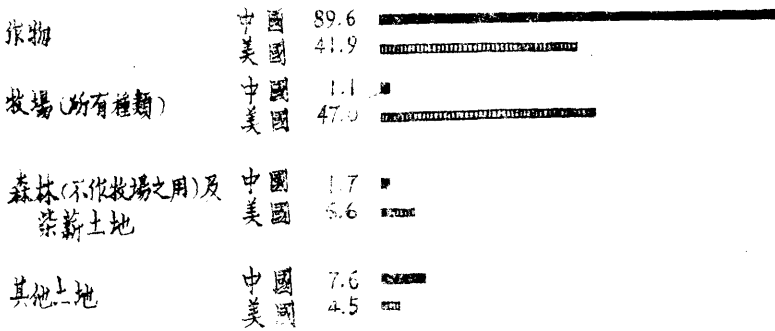 作物 中國 89.6
美國 41.9
牧場(所有種類) 中國 1.1
美國 47.0
森林(不作牧場之用)及 中國 1.7
柴薪土地 美國 6.6
其他土地 中國 7.6
美國 4.5